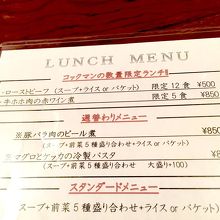 LUNCH MENU
コックマンの数量限定ランチ!!
・ローストビーフ (スープ+ライス or バケット) 限定12食 ¥500
・牛ホホ肉の赤ワイン煮 限定5食 ¥850
週替わりメニュー
※豚バラ肉のビール煮 ¥850
(スープ+前菜5種盛り合わせ+ライス or バケット)
生マグロとケッカの冷製パスタ ¥
(スープ+前菜5種盛り合わせ 大盛り+100)
スタンダードメニュー
スープ+前菜5種盛り合わせ+ライス or